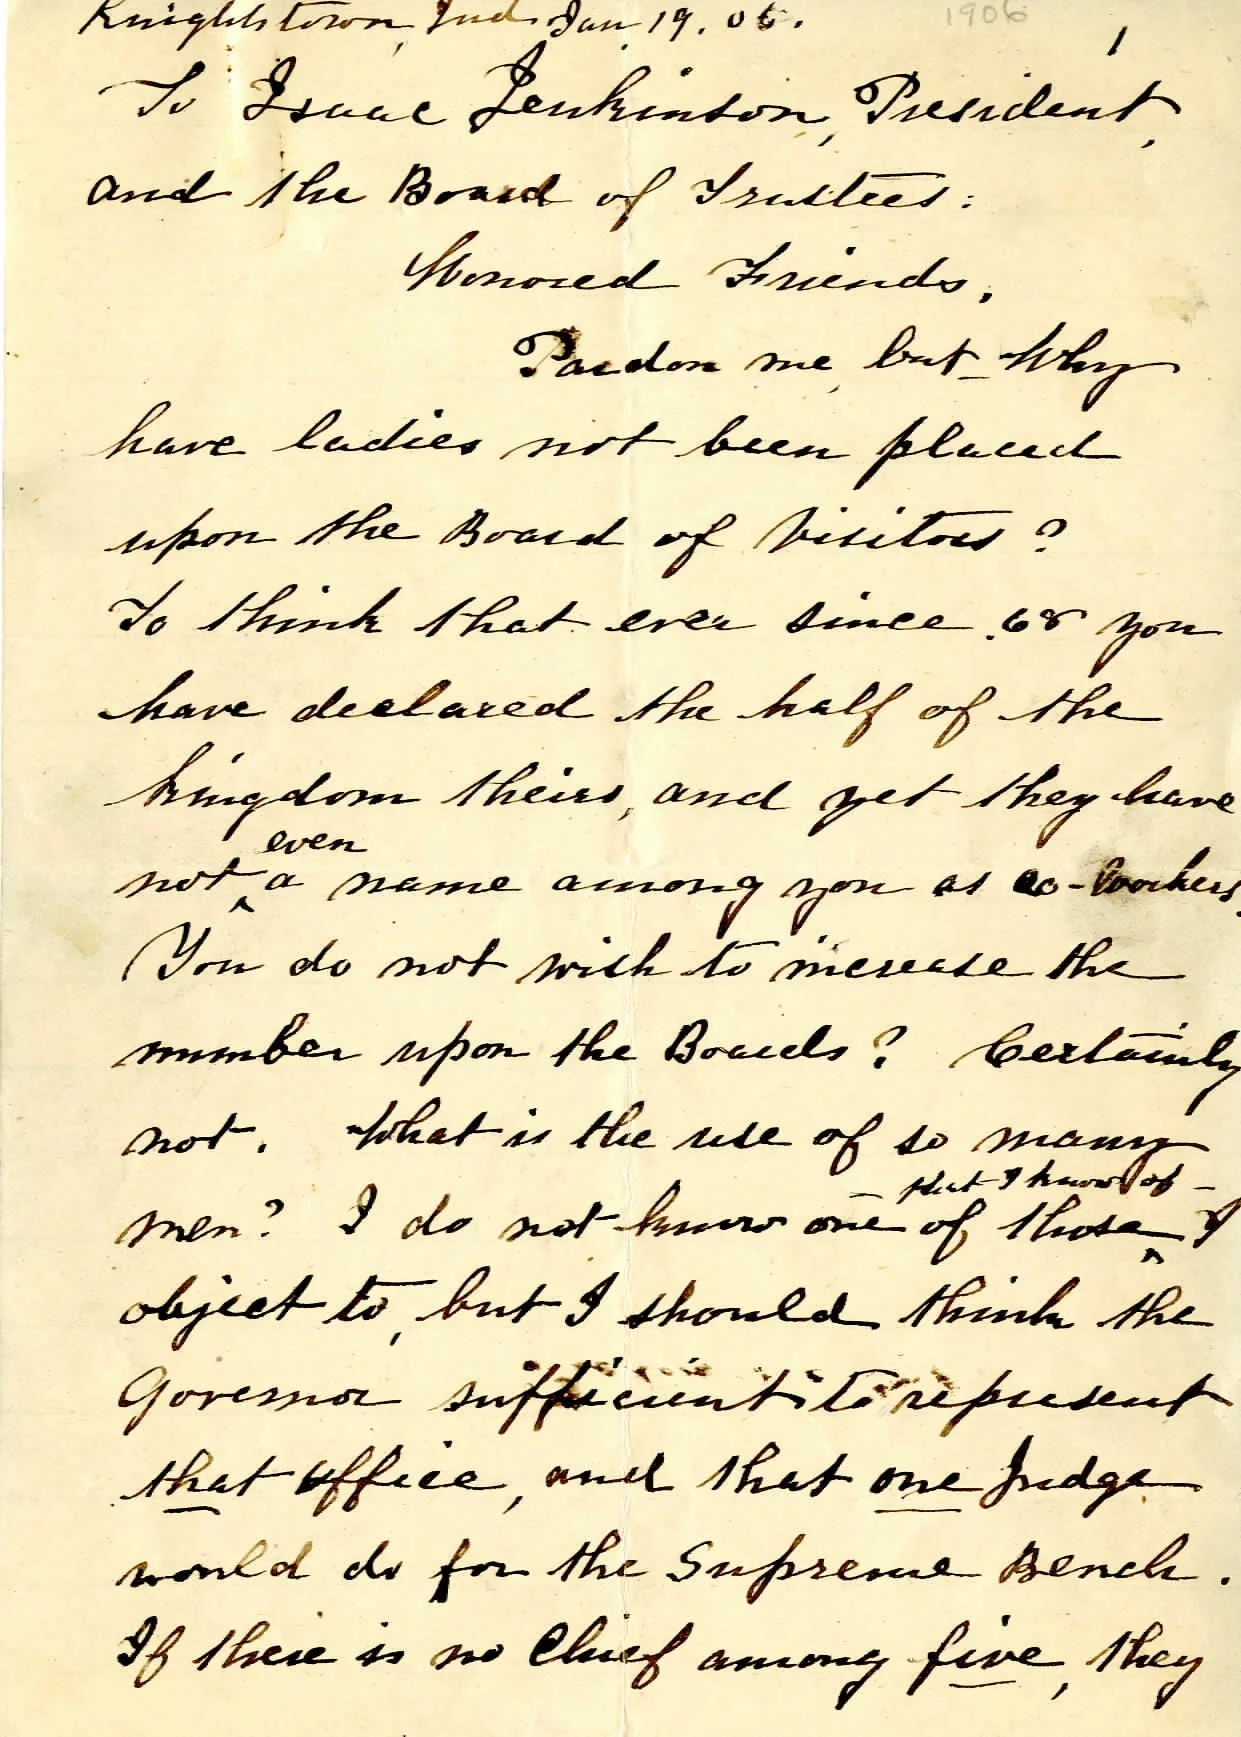 Knightstown, Ind. Jan. 19. 06.
1906
1
To Isaac Jenkinson, President,
and the Board of Trustees:
Honored Friends,
Pardon me, but Why
have ladies not been placed
upon the Board of Visitors?
To think that ever since .68 you
have declared the half of the
kingdom theirs, and yet they have
even
not ^ a name among you as co-workers.
You do not wish to increase the
number upon the Boards? Certainly
not. What is the use of so many
that I know of -
men? I do not know one of those ^ I
object to, but I should think the
Governor sufficient to represent
that office, and that one Judge
would do for the Supreme Bench.
If there is no Chief among five, they